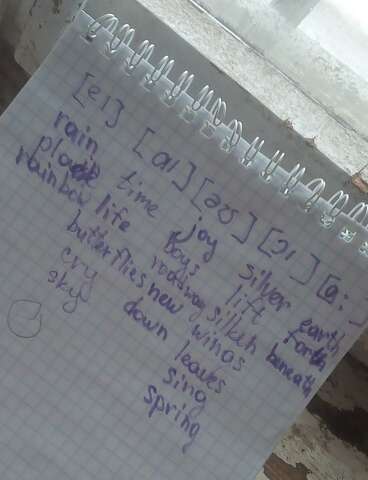 [eɪ] [aɪ] [əʊ] [ɔɪ] [a:
rain time joy silver earth
life boys lift forth
rainbow butterflies silken beneath
cry new wings
sky down leaves
sing
spring